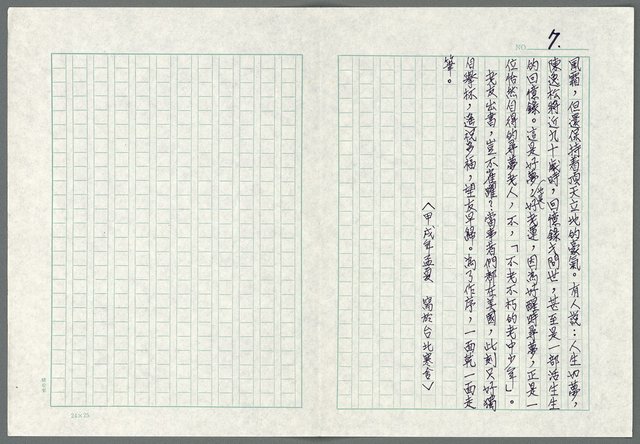 NO. 7.
風霜，但還保持著頂天立地的豪氣。有人說：人生如夢，
陳逸松將近九十歲時，回憶錄才問世，甚至是一部活生生
的回憶錄。這是好夢，也是好老運，因為好醒時尋夢，正是一
位怡然自得的尋夢老人，不，「不老不朽的老中少年」。
老友出書，豈不雀躍？當事者們都在美國，此刻只好獨
自舉杯，遙祝多福，望友早歸。為了作序，一面乾一面走
筆。
〈甲戌年孟夏　寫於台北寒舍〉
24×25